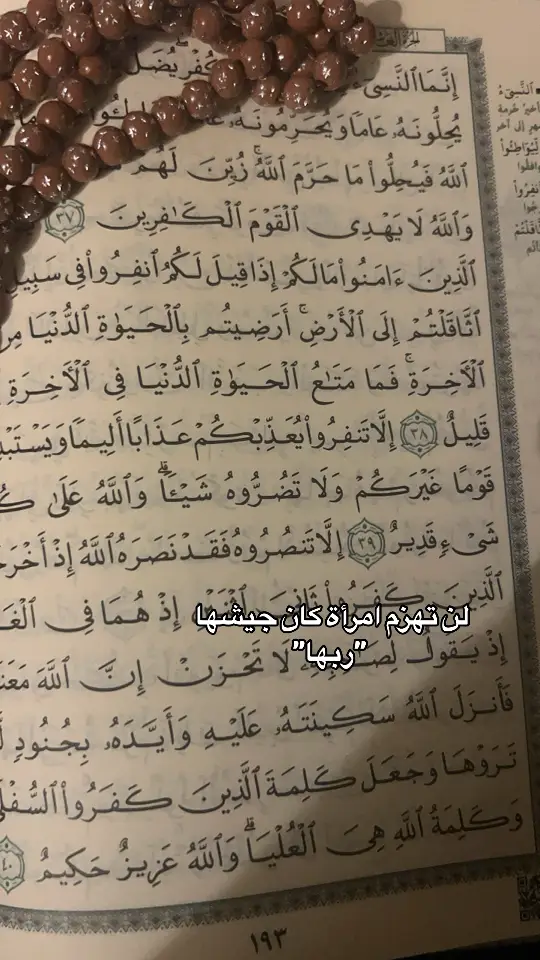 إِنَّمَا ٱلنَّسِىٓءُ
كُفْرٌ يُضَلُّ
يُحِلُّونَهُۥ عَامًا وَيُحَرِّمُونَهُۥ
ٱللَّهُ فَيُحِلُّوا۟ مَا حَرَّمَ ٱللَّهُ ۚ زُيِّنَ لَهُمْ
وَٱللَّهُ لَا يَهْدِى ٱلْقَوْمَ ٱلْكَـٰفِرِينَ ٣٧
ٱلَّذِينَ ءَامَنُوا۟ مَا لَكُمْ إِذَا قِيلَ لَكُمُ ٱنفِرُوا۟ فِى سَبِيلِ
ٱثَّاقَلْتُمْ إِلَى ٱلْأَرْضِ ۚ أَرَضِيتُم بِٱلْحَيَوٰةِ ٱلدُّنْيَا مِنَ
ٱلْـَٔاخِرَةِ ۚ فَمَا مَتَـٰعُ ٱلْحَيَوٰةِ ٱلدُّنْيَا فِى ٱلْـَٔاخِرَةِ
قَلِيلٌ ٣٨ إِلَّا تَنفِرُوا۟ يُعَذِّبْكُمْ عَذَابًا أَلِيمًا وَيَسْتَبْدِ
قَوْمًا غَيْرَكُمْ وَلَا تَضُرُّوهُ شَيْـًٔا ۗ وَٱللَّهُ عَلَىٰ كُ
شَىْءٍ قَدِيرٌ ٣٩ إِلَّا تَنصُرُوهُ فَقَدْ نَصَرَهُ ٱللَّهُ إِذْ أَخْرَجَ
ٱلَّذِينَ كَفَرُوا۟ ثَانِىَ ٱثْنَيْنِ إِذْ هُمَا فِى ٱلْغَا
لن تهزم امرأة كان جيشها
"ربها"
إِذْ يَقُولُ لِصَـٰحِبِهِۦ لَا تَحْزَنْ إِنَّ ٱللَّهَ مَعَنَا
فَأَنزَلَ ٱللَّهُ سَكِينَتَهُۥ عَلَيْهِ وَأَيَّدَهُۥ بِجُنُودٍ لَّ
تَرَوْهَا وَجَعَلَ كَلِمَةَ ٱلَّذِينَ كَفَرُوا۟ ٱلسُّفْلَىٰ
وَكَلِمَةُ ٱللَّهِ هِىَ ٱلْعُلْيَا ۗ وَٱللَّهُ عَزِيزٌ حَكِيمٌ ٤٠
١٩٣
ٱلنَّسِىٓءُ